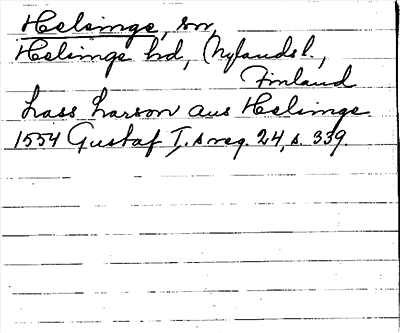 Helsinge, sn,
Helsinge hd, (Nylands l.,
Finland
Lass Larson aus Helsinge.
1554 Gustaf I:s reg. 24, s. 339.